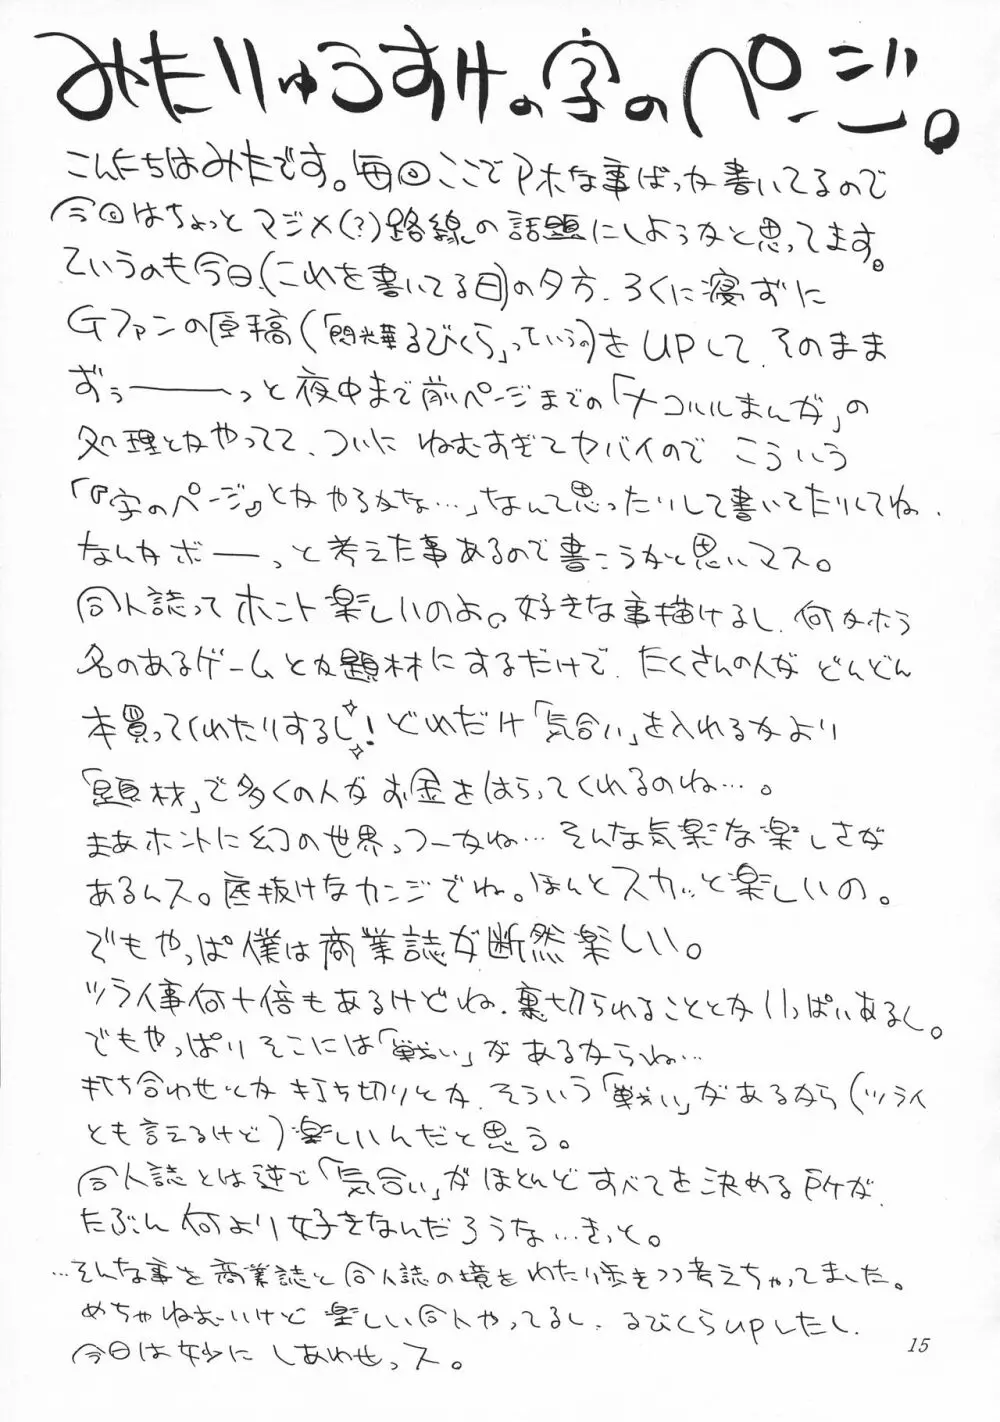 みたりゅうすけの字のページ。
こんにちはみたです。毎回ここでアホな事ばっか書いてるので
今回はちょっとマジメ(?)路線の話題にしようかと思ってます。
ていうのも今日(これを書いてる日)の夕方、ろくに寝ずに
Gファンの原稿(「閃光華るびくら」っていうの)をUPして、そのまま
ずぅーーっと夜中まで前ページまでの「ナコルルまんが」の
処理とかやってて、ついにねむすぎてヤバイのでこういう
「『字のページ』とかやるかな…」なんて思ったりして書いてたりしてね、
なんかボーーっと考えた事あるので書こうかと思いマス。
同人誌ってホント楽しいのよ。好きな事描けるし、何かホラ
名のあるゲームとか題材にするだけで、たくさんの人がどんどん
本買ってくれたりするし!どれだけ「気合い」を入れるかより
「題材」で多くの人がお金をはらってくれるのね…。
まあホントに幻の世界っつーかね…そんな気楽な楽しさが
あるんス。底抜けなカンジでね。ほんとスカッと楽しいの。
でもやっぱ僕は商業誌が断然楽しい。
ツライ事何十倍もあるけどね、裏切られることとかいっぱいあるし。
でもやっぱりそこには「戦い」があるからね…
打ち合わせとか打ち切りとか、そういう「戦い」があるから(ツライ
とも言えるけど)楽しいんだと思う。
同人誌とは逆で「気合い」がほとんどすべてを決める所が、
たぶん何より好きなんだろうな…きっと。
…そんな事を商業誌と同人誌の境をわたり歩きつつ考えちゃってました。
めちゃねむいけど楽しい同人やってるし、るびくらUPしたし、
今日は妙にしあわせっス。
15